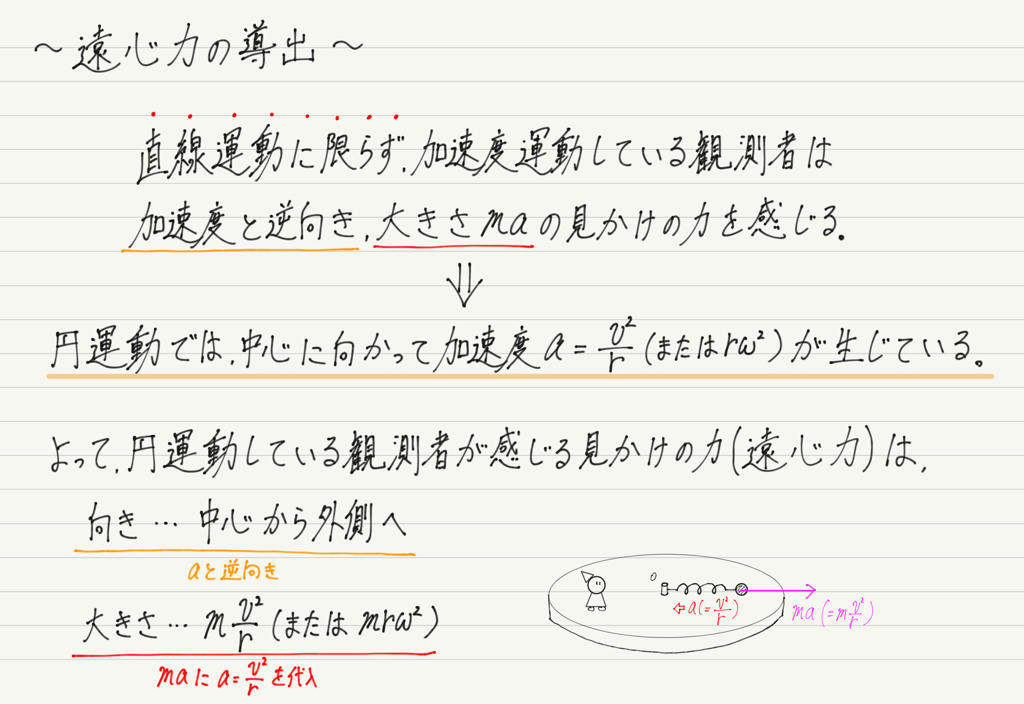 ～遠心力の導出～
直線運動に限らず,加速度運動している観測者は
加速度と逆向き,大きさmaの見かけの力を感じる。
⇓
円運動では,中心に向かって加速度 a = v²/r (またはrω²)が生じている。
よって,円運動している観測者が感じる見かけの力(遠心力)は,
向き… 中心から外側へ
aと逆向き
大きさ… m v²/r (または mrω²)
maに a = v²/r を代入
o
⇦ a(= v²/r)
ma (= m v²/r)